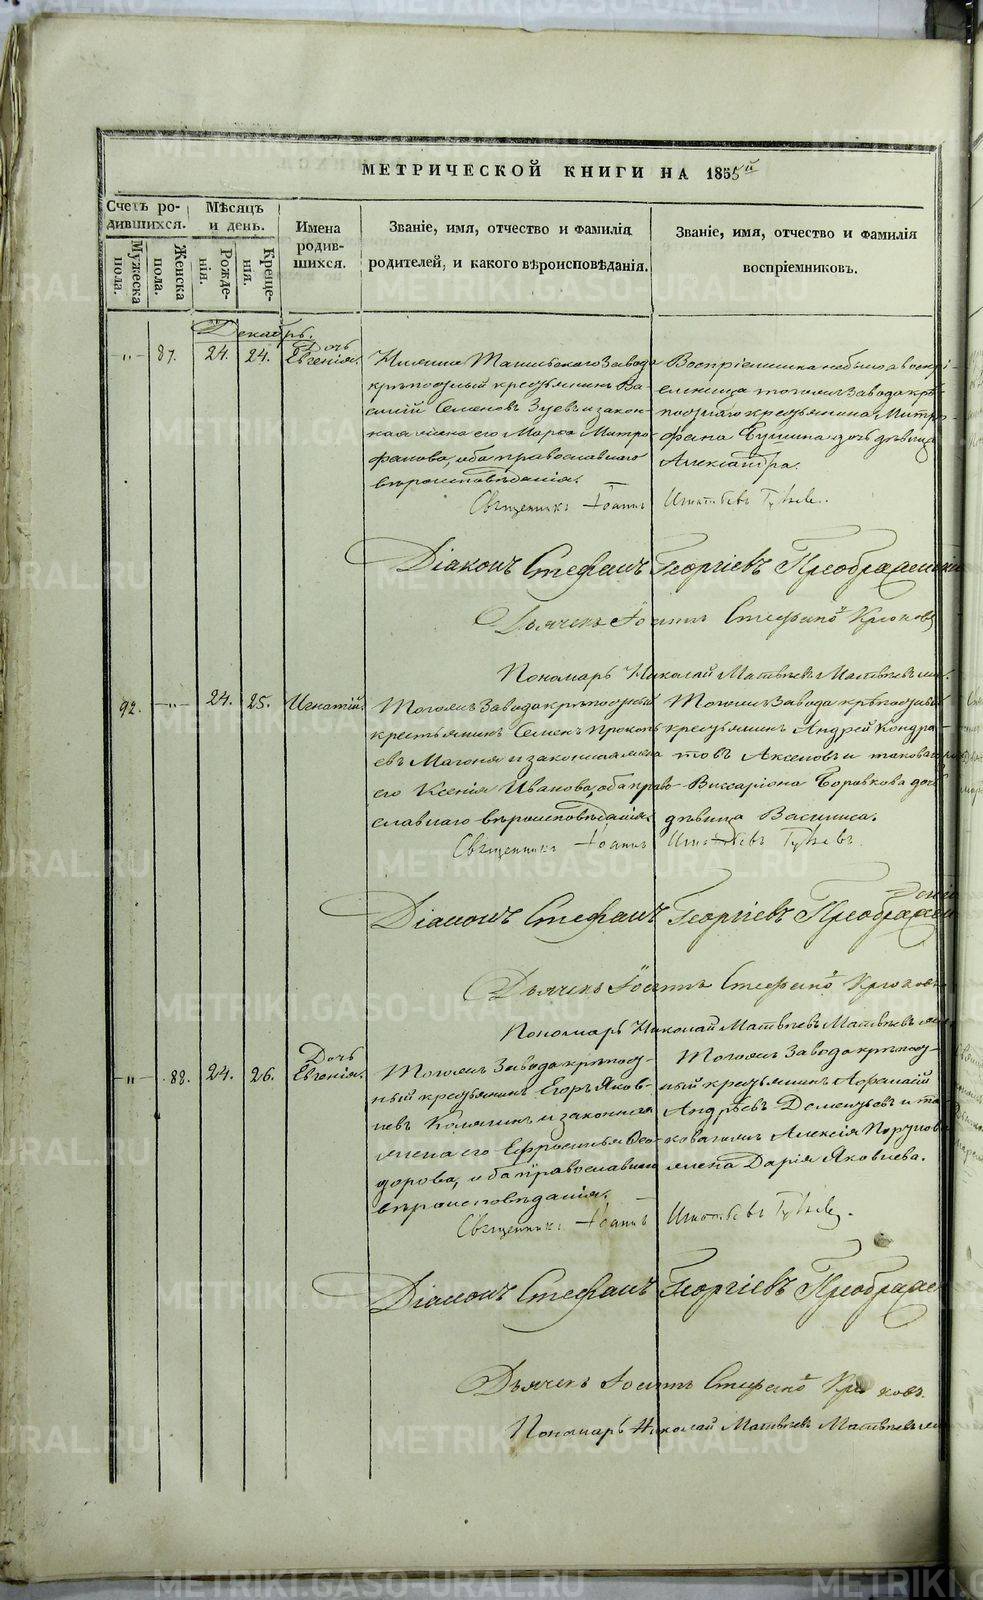 МЕТРИЧЕСКОЙ КНИГИ НА 1855й
Счетъ ро-
дившихся.
Мужеска
пола.
Женска
пола.
Мѣсяцъ
и день.
Рожде-
нія.
Креще-
нія.
Имена
родив-
шихся.
Званіе, имя, отчество и фамилія
родителей, и какого вѣроисповѣданія.
Званіе, имя, отчество и фамилія
воспріемниковъ.
Декабрь.
-„- 87. 24. 24.
Дочь
Евгенія.
Нижне Тагильскаго Завода
крѣпостный крестьянинъ Ва-
силій Семеновъ Зуевъ и закон-
ная жена его Марѳа Митро-
фанова, оба православнаго
вѣроисповѣданія.
Воспріемника небыло а воспрі-
емница тогожъ Завода крѣ-
постнаго крестьянина Митро-
фана дочь дѣвица
Александра.
Священникъ Іоаннъ Игнатьевъ
Діаконъ Стефанъ Георгіевъ Преображенскій
Дьячекъ Іоаннъ Стефановъ Крюковъ
Пономарь Николай Матвѣевъ
92. -„- 24. 25. Игнатій.
Тогожъ Завода крѣпостный
крестьянинъ Семенъ Прокопь-
евъ и законная жена
его Ксенія Иванова, оба право-
славнаго вѣроисповѣданія.
Тогожъ Завода крѣпостный
крестьянинъ Андрей Кондра-
товъ Аксеновъ и таковаго
Виссаріона Боровкова дочь
дѣвица Васиlиса.
Священникъ Іоаннъ Игнатьевъ
Діаконъ Стефанъ Георгіевъ Преображен
Дьячекъ Іоаннъ Стефановъ Крюковъ
Пономарь Николай Матвѣевъ
-„- 88. 24. 26.
Дочь
Евгенія.
Тогожъ Завода крѣпост-
ный крестьянинъ Егоръ Яков-
левъ и законная
жена его Ефросинья Ѳео-
дорова, оба православнаго
вѣроисповѣданія.
Тогожъ Завода крѣпост-
ный крестьянинъ Афанасій
Андрѣевъ Дементьевъ и та-
коваго Алексія
жена Дарія Яковлева.
Священникъ Іоаннъ Игнатьевъ
Діаконъ Стефанъ Георгіевъ Преображ
Дьячекъ Іоаннъ Стефановъ Крюковъ
Пономарь Николай Матвѣевъ
METRIKI.GASO-URAL.RU